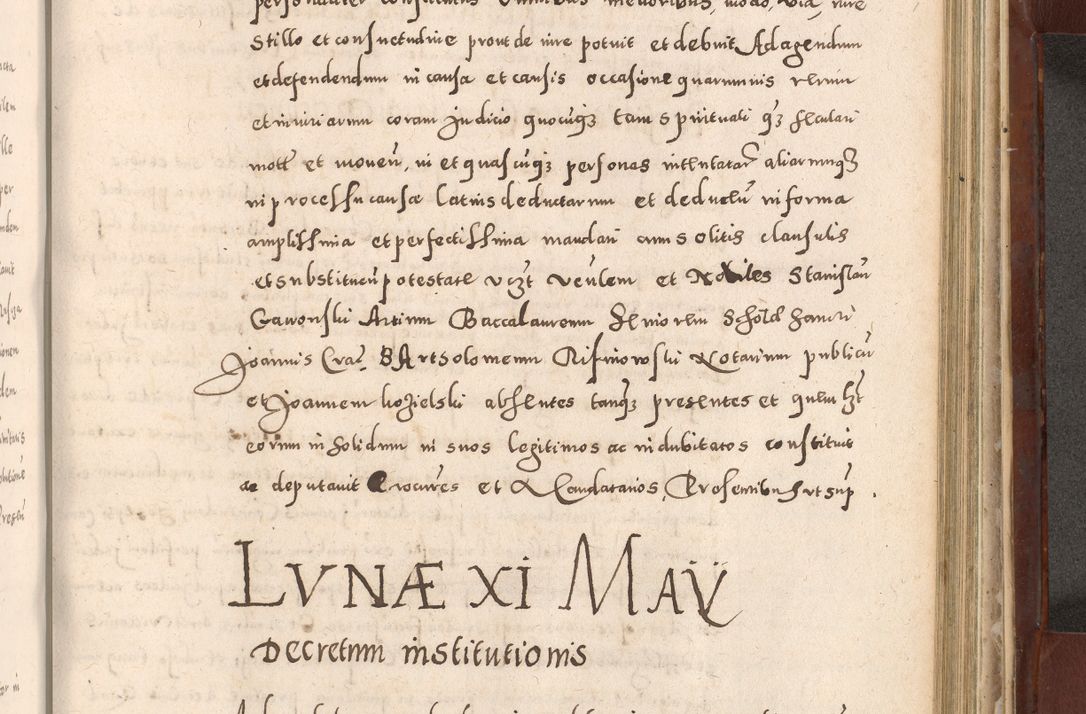 personaliter constitutus omnibus melioribus, modo, via, iure
stillo et consuetudine prout de iure potuit et debuit Ad agendum
et defendendum in causa et causis occasione quarumvis rerum
et iniuriarum coram Judicio quocuqz tam spirituali qz seculari
mott et moven, in et quascuqz personas intentatar aliarumqz
in processu causæ latius deductarum et deducen in forma
amplissima et perfectissima mandati cum solitis clausulis
et substituen potestate vczt venlem et Nobiles Stanislau
Gawonski Artium Baccalaureum Seniorem
Joannis Crac Bartholomeum Notarium publicu
et Joannem kozielski absentes tanqz presentes et quem lzt
eorum in solidum in suos legitimos ac indubitatos constituit
ac deputavit Procures et Mandatarios, Presentibus ut sup.
LVNÆ XI MAY
Decretum institutionis